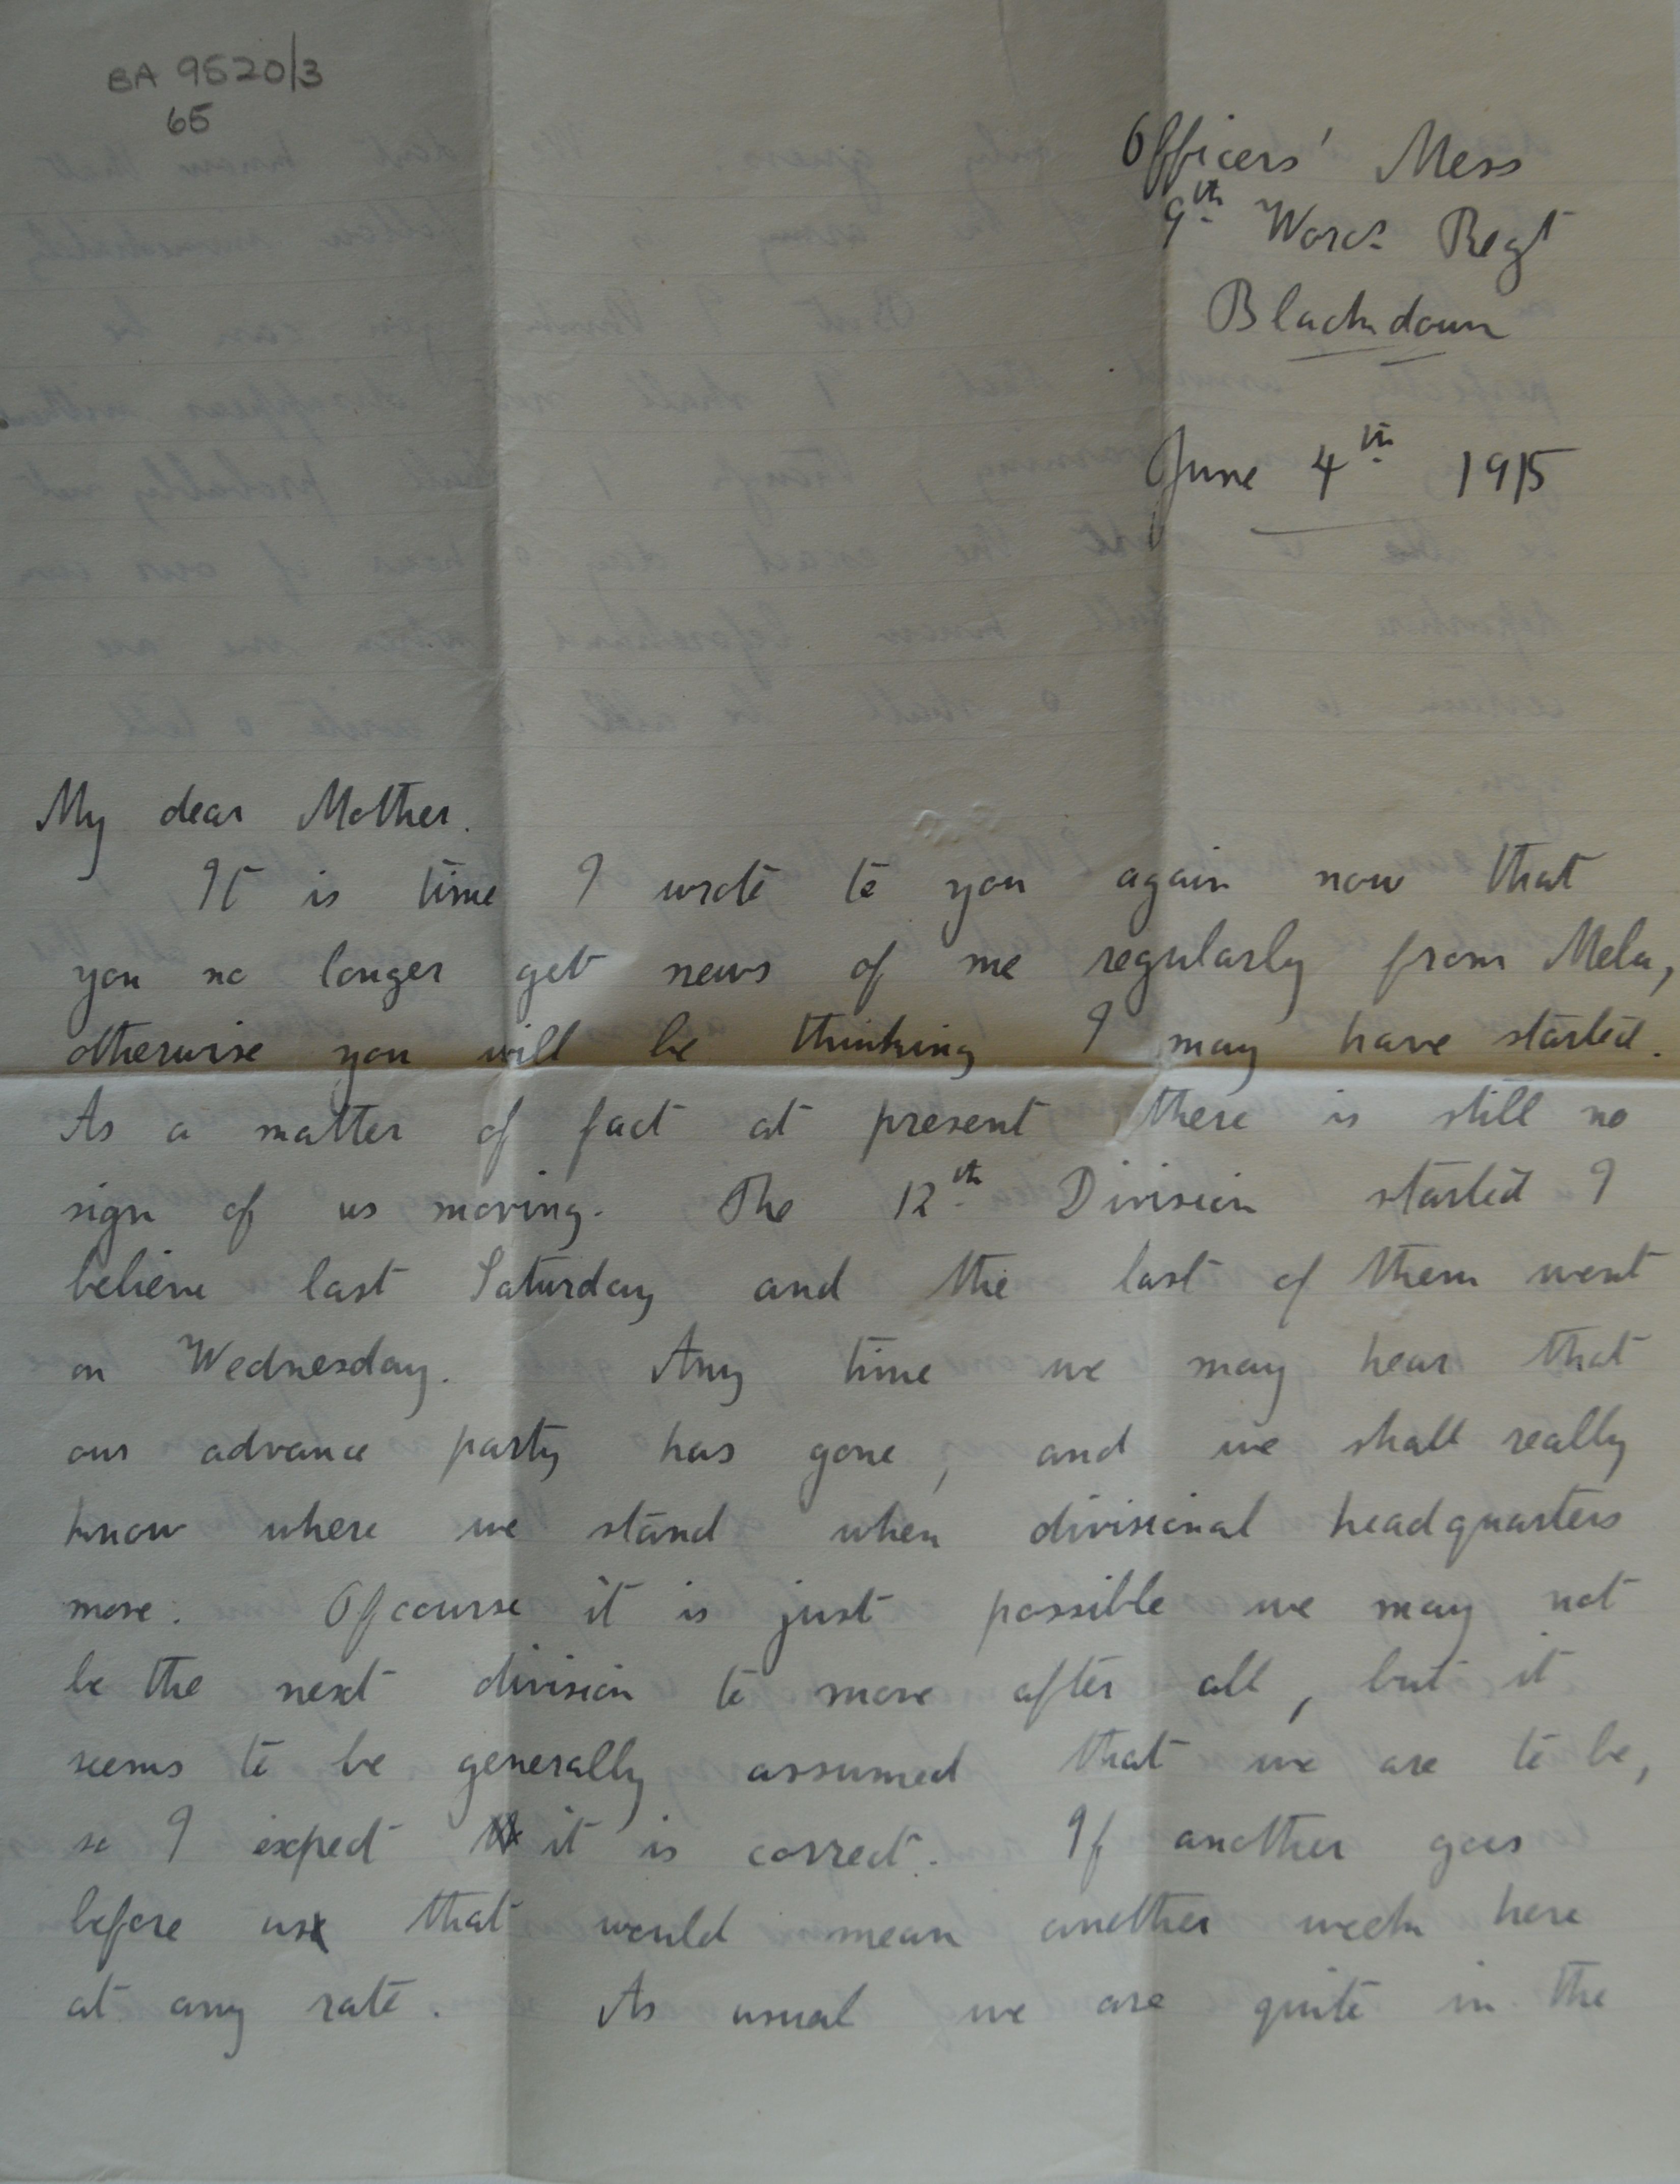 BA 9520/3
65
Officers' Mess
9th Worcs Regt
Blackdown
June 4th 1915
My dear Mother.
It is time I wrote to you again now that
you no longer get news of me regularly from Mela,
otherwise you will be thinking I may have started.
As a matter of fact at present there is still no
sign of us moving. The 12th Division started I
believe last Saturday and the last of them went
on Wednesday. Any time we may hear that
our advance party has gone, and we shall really
know where we stand when divisional headquarters
move. Of course it is just possible we may not
be the next division to move after all, but it
seems to be generally assumed that we are to be,
so I expect it is correct. If another goes
before us that would mean another week here
at any rate. As usual we are quite in the